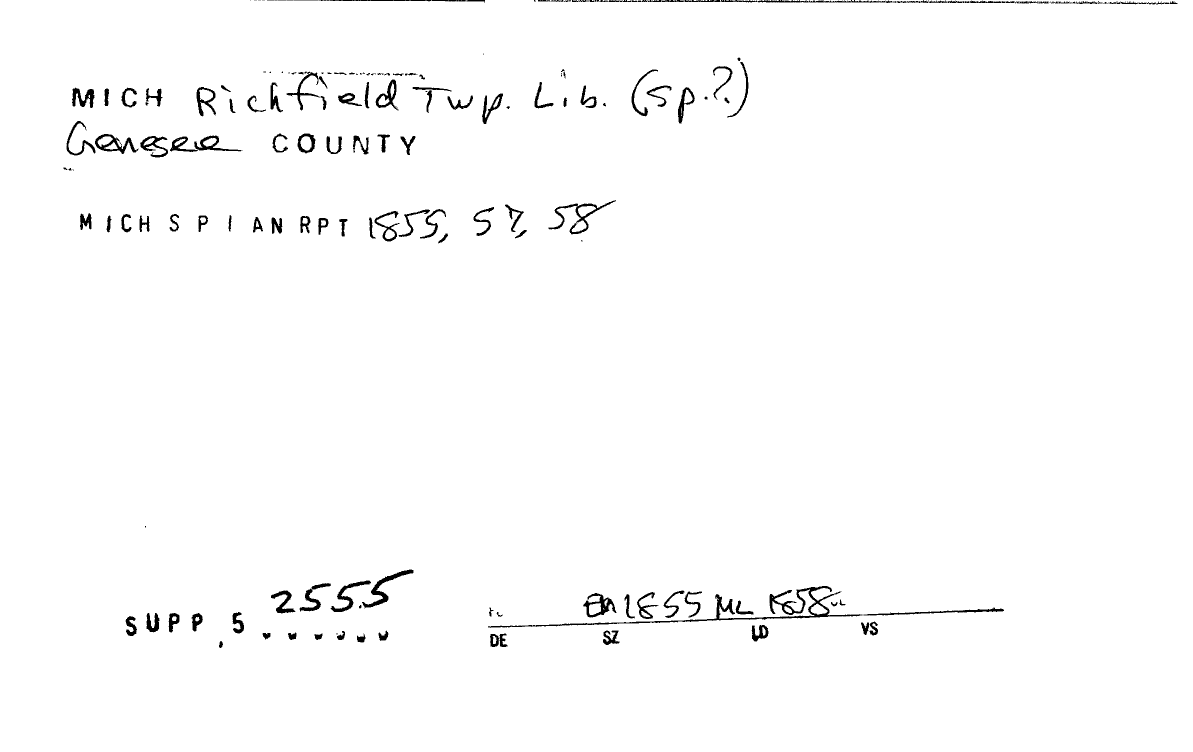 MICH Richfield Twp. Lib. (sp.?)
Genesee COUNTY
MICH S P I AN RPT 1855, 57, 58
SUPP, 5 2555
1855 ML 1858
DE SZ LD VS